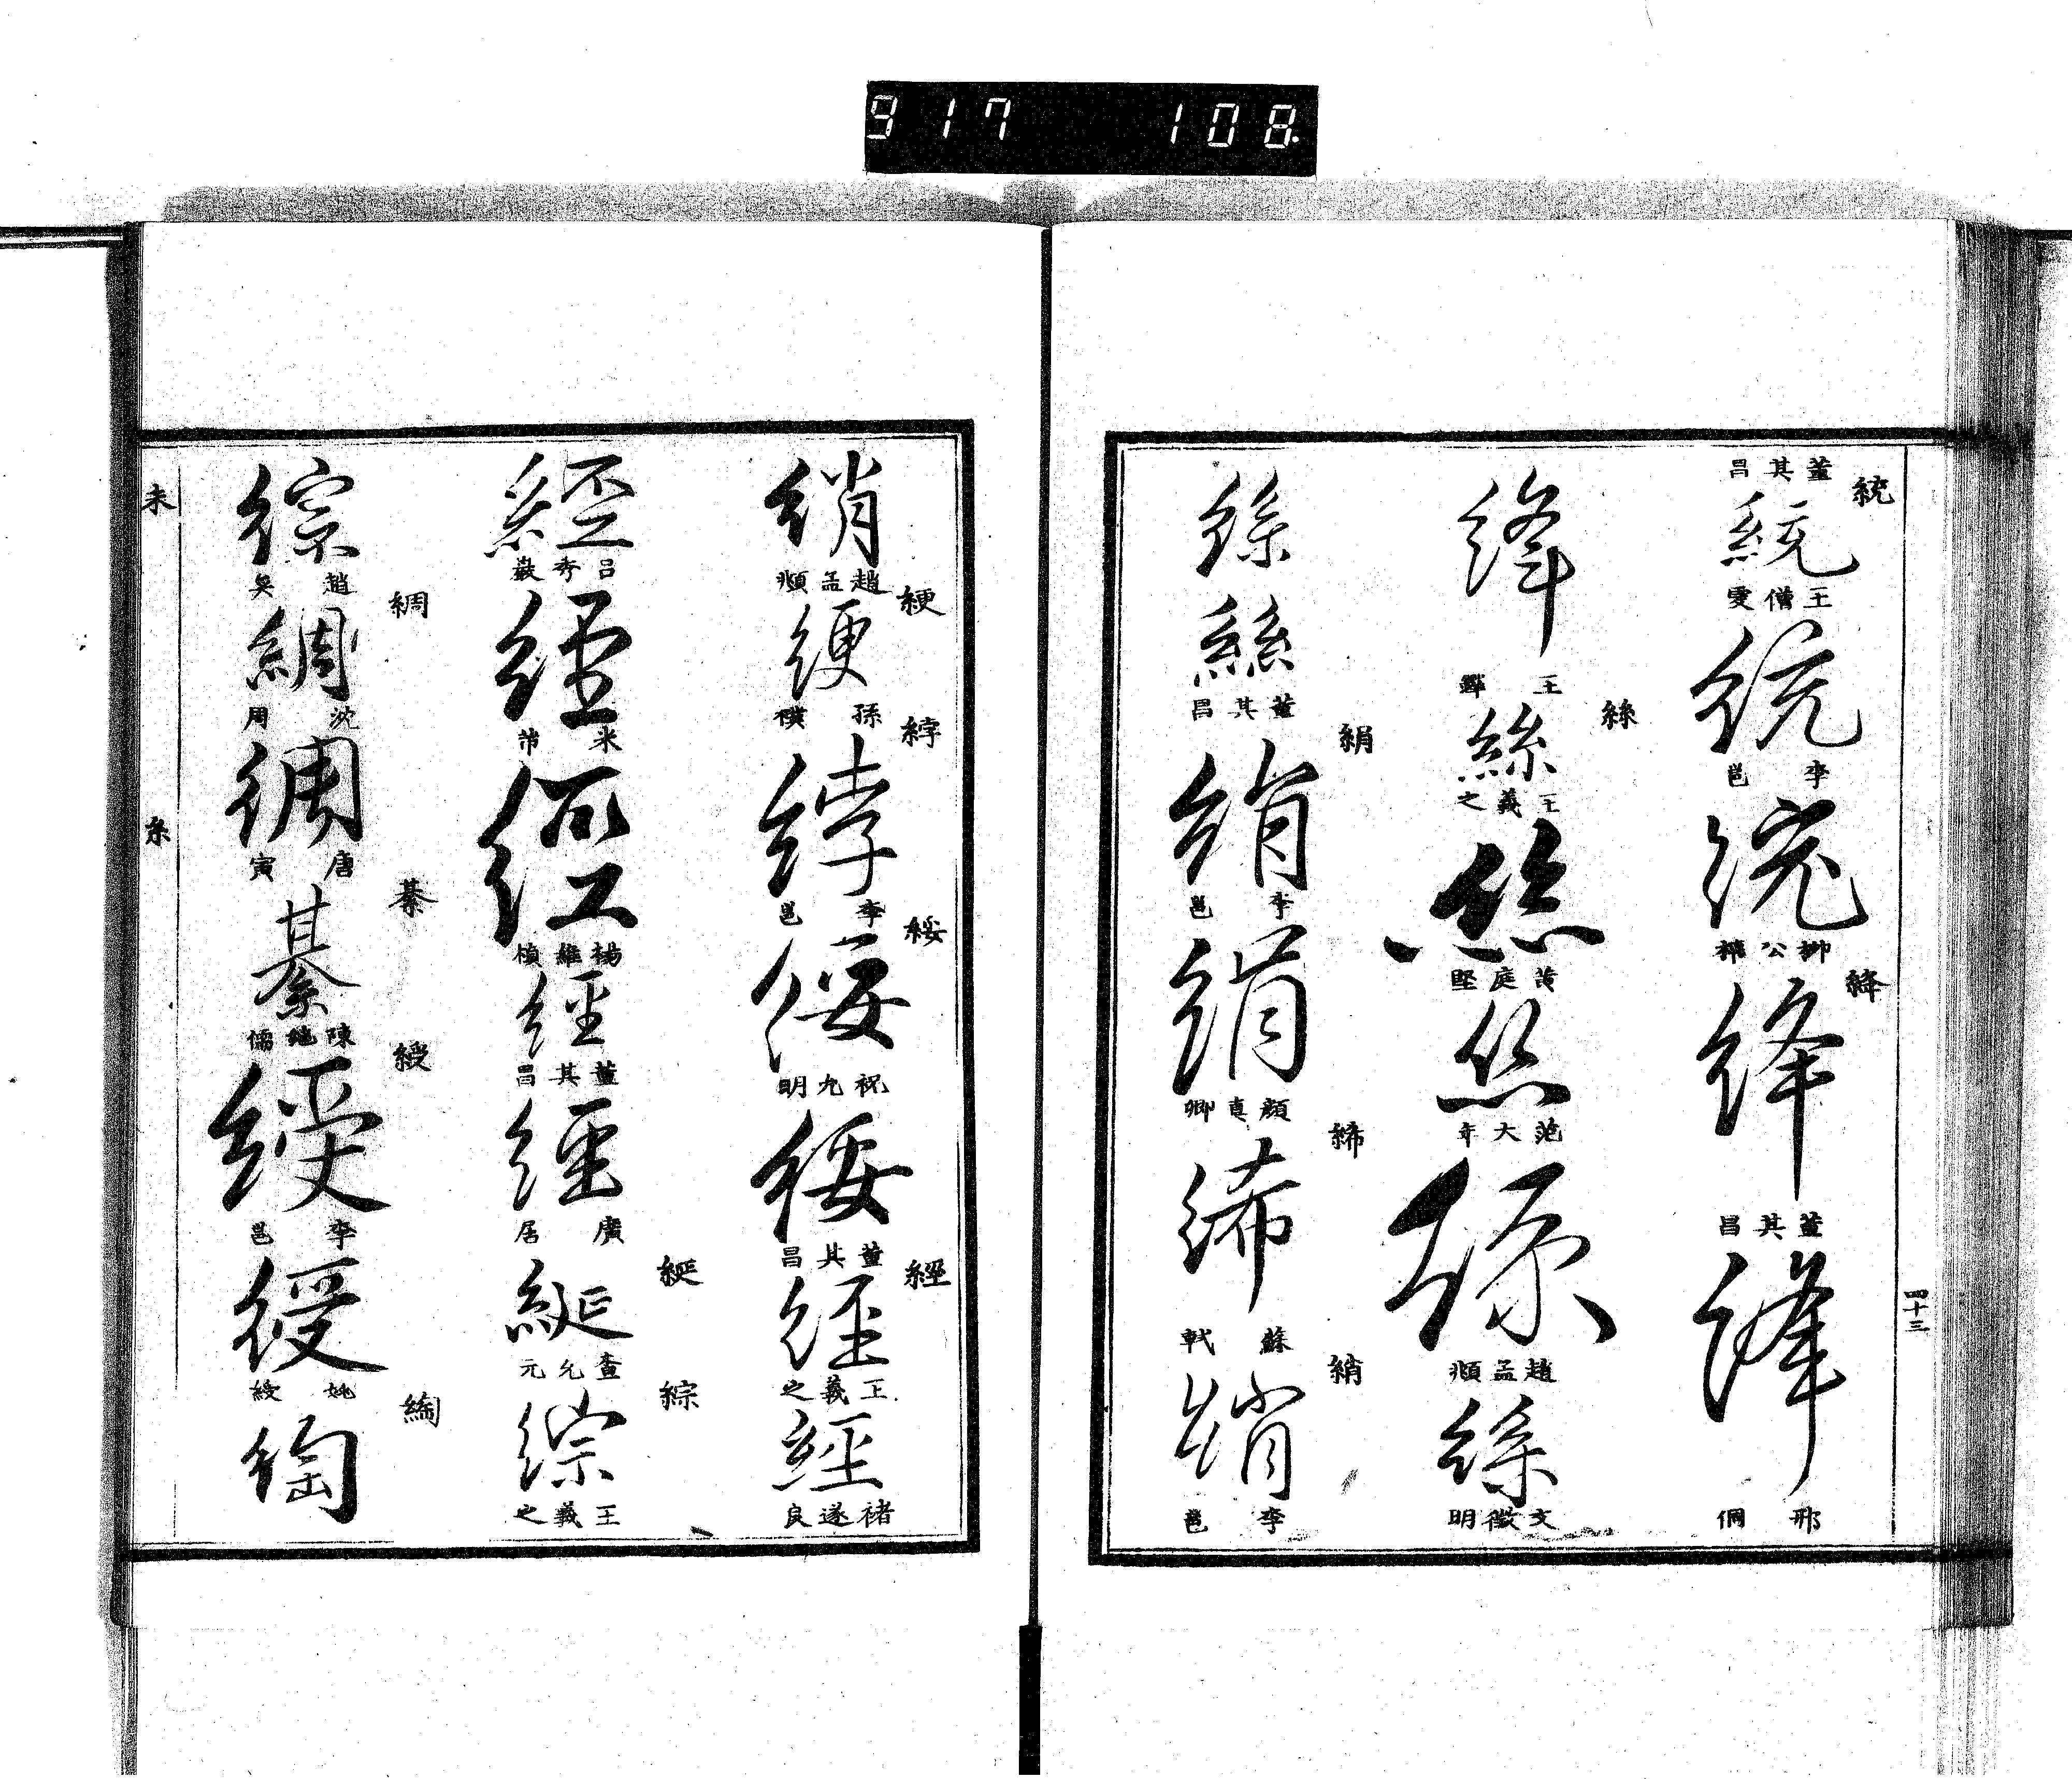 917 108
統
董其昌
統
王僧虔
統
李邕
統
柳公權
絳
絳
董其昌
絳
邢侗
四十三
絳
王鐸
絲
絲
王羲之
絲
黃庭堅
絲
范大年
絲
趙孟頫
絲
文徵明
絲
絲
董其昌
絹
絹
李邕
絹
顏真卿
絺
絺
蘇軾
綃
綃
李邕
綃
趙孟頫
綆
綆
孫襆
綍
綍
李邕
綏
綏
祝允明
綏
董其昌
經
經
王羲之
經
褚遂良
經
呂秀巖
經
米芾
經
楊維楨
經
董其昌
經
廣居
綖
綖
查允元
綜
綜
王羲之
綜
趙奐
綢
綢
沈周
綢
唐寅
綦
綦
陳繼儒
綬
綬
李邕
綬
姚綬
綯
綯
未
糸